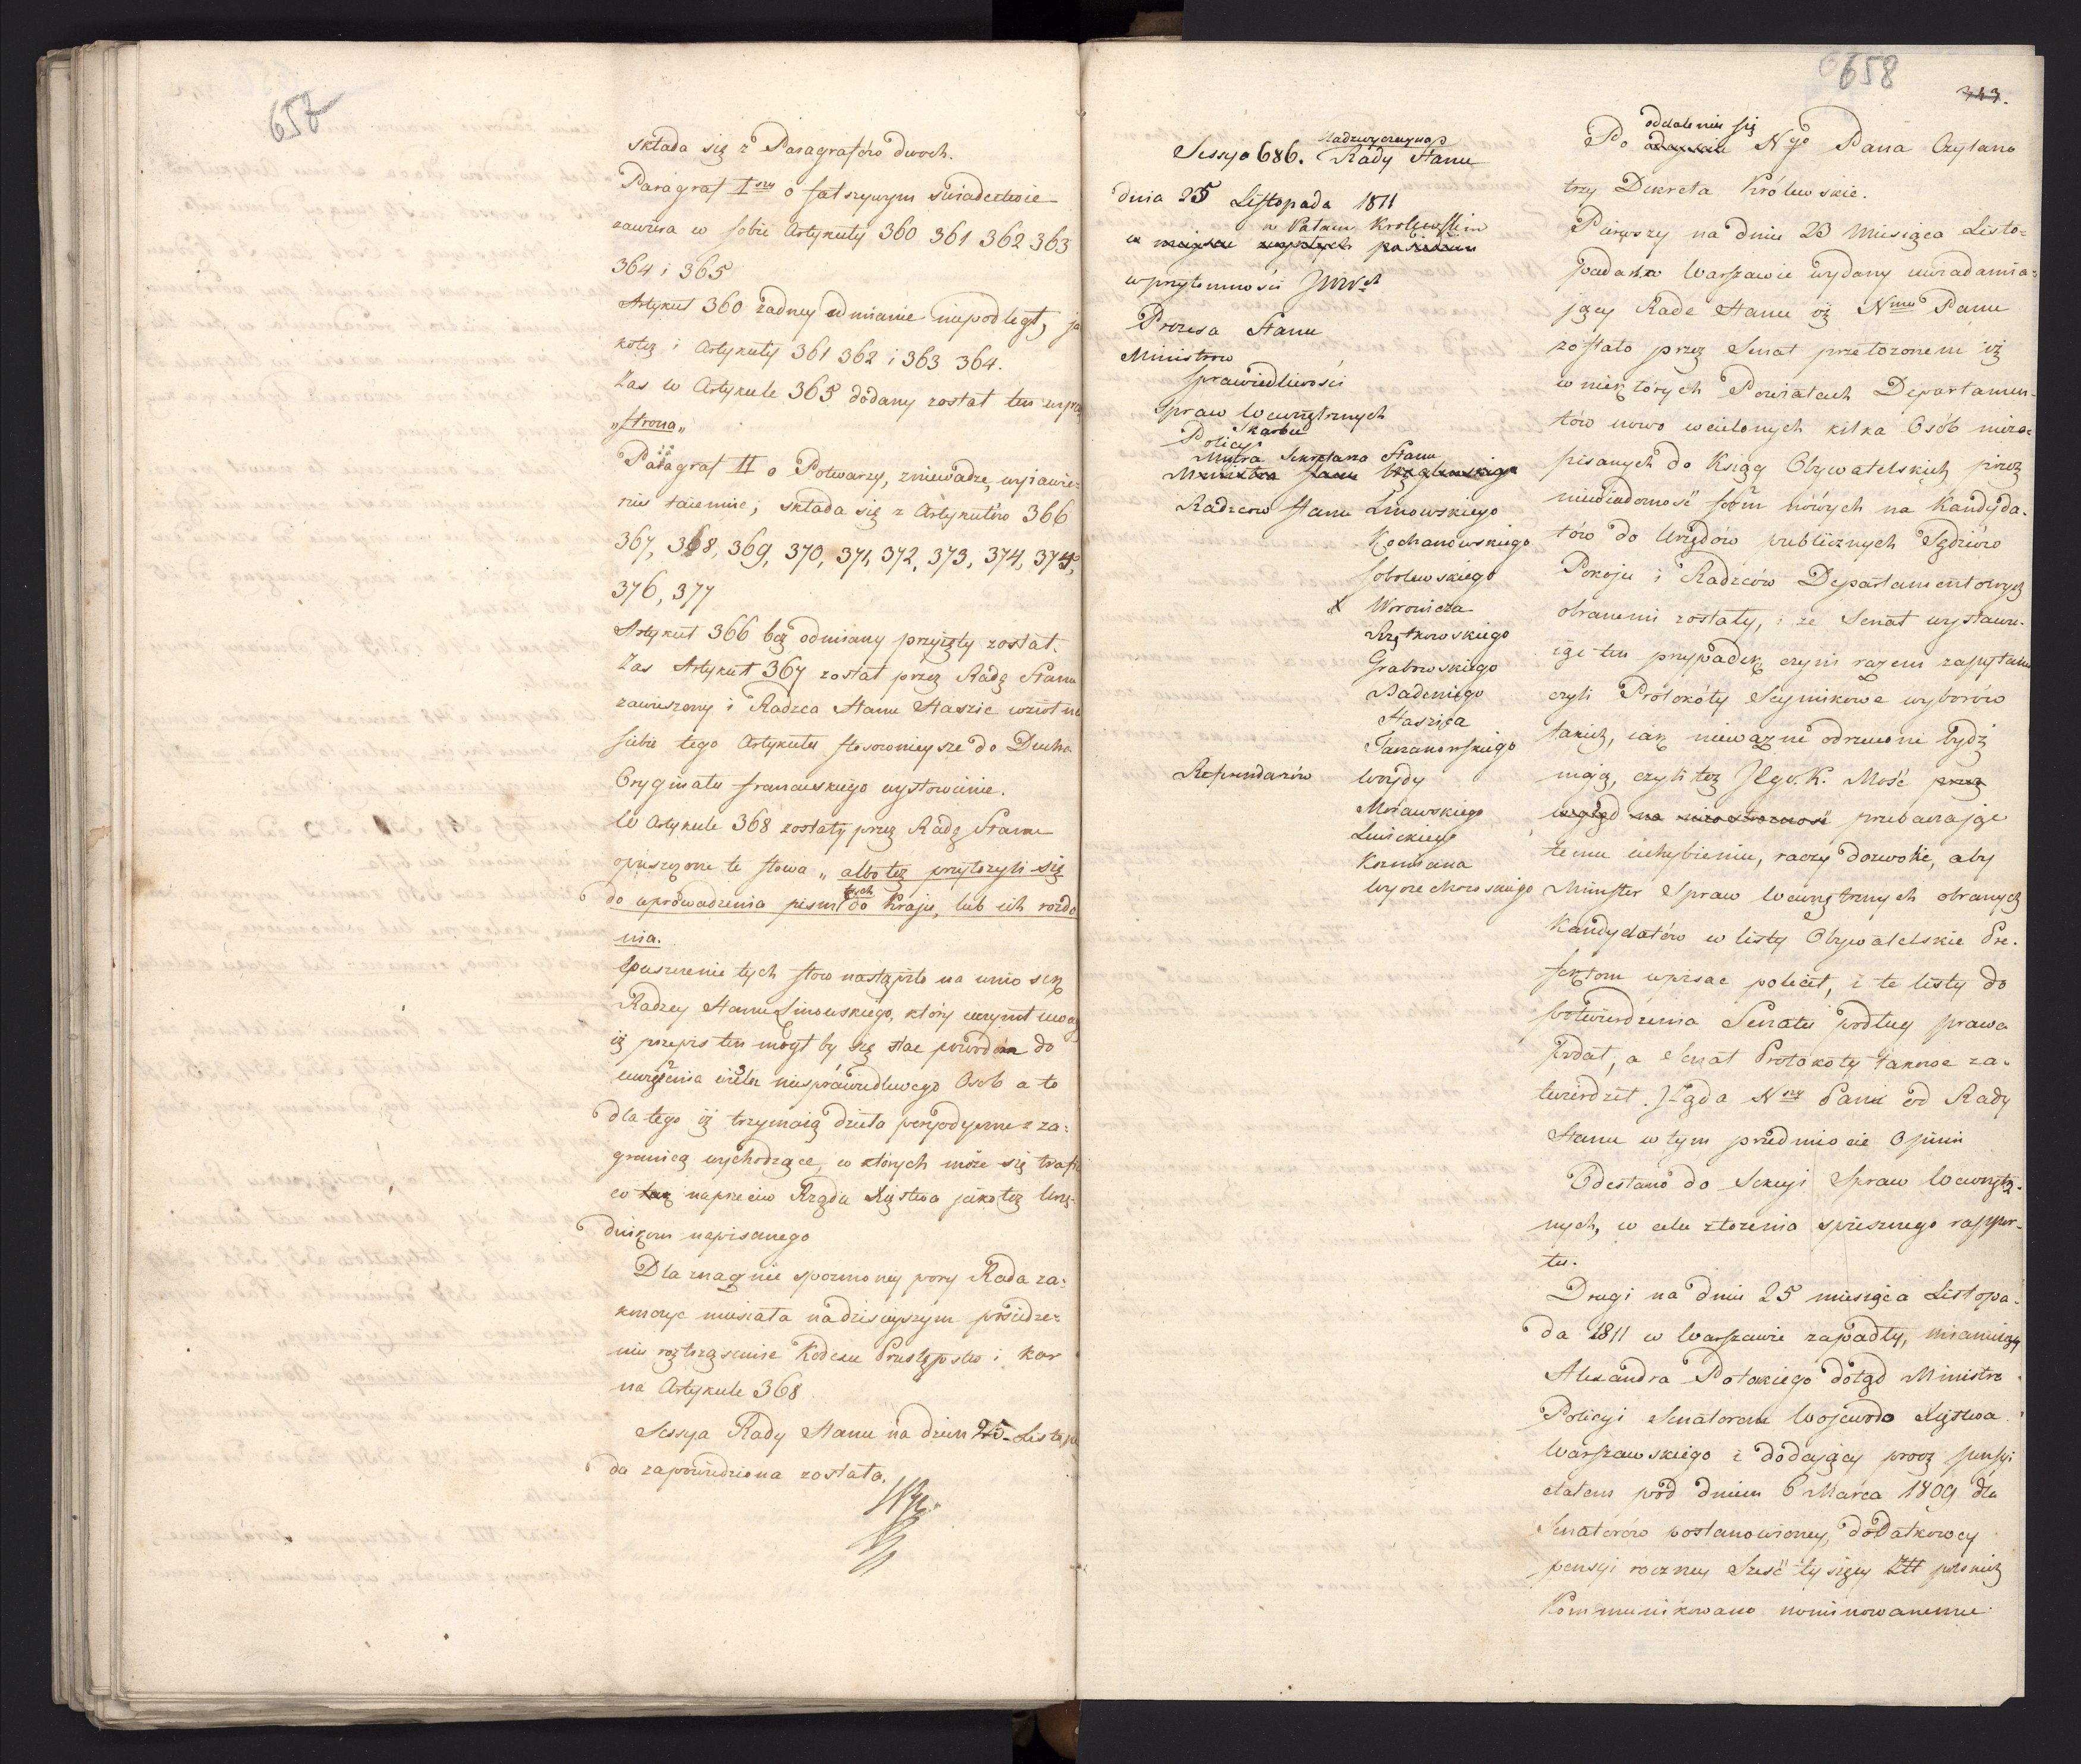 657
składa się z Paragrafów dwoch.
Paragraf Iszy o fałszywym swiadectwie
zawiera w sobie Artykuły 360 361 362 363
364 i 365
Artykuł 360 żadney odmianie niepodległ, ja
koteż i Artykuły 361 362 i 363 364.
Zas w Artykule 365 dodany został ten wyraz
„strona„
Paragraf II o Potwarzy, zniewadze, wyiawie-
niu taiemnic; składa się z Artykułów 366
367, 368, 369, 370, 371, 372, 373, 374, 375,
376, 377
Artykuł 366 bez odmiany przyięty został.
Zas Artykuł 367 został przez Radę Stanu
zawieszony i Radzca Stanu Staszic wzioł na
siebie tego Artykułu stosowneysze do Ducha
Oryginału francuskiego wysłowienie.
W Artykule 368 zostały przez Radę Stanu
opuszczone te słowa „ albo też przyłożyli się
do wprowadzenia pism tych do Kraju, lub ich rozda
nia.
Opuszczenie tych słow nastąpiło na wniosek
Radzcy Stanu Linowskiego, który uczynił uwagę
iż przepis ten mogł by się stac powodem do
uwięzienia wielu niesprawiedliwego Osob a to
dla tego iż trzymaią dzieła peryodyczne z za-
granicą wychodzące, w ktorych może się trafić
co naprzeciw Rządu Xięstwa jakoteż Urzę-
dnikom napisanego
Dla znacznie spoznioney pory Rada za-
konczyc musiała na dzisieyszym posiedze-
niu roztrząsanie Kodexu Przestępstw i kar
na Artykule 368
Sessya Rady Stanu na dzien 25 Listopa
da zapowiedziana została.
658
343.
Sessya 686. Nadzwyczayna Rady Stanu
dnia 25 Listopada 1811
w Pałacu Krolewskim
w miejscu zwykłych posiedzen
w przytomności JWWch
Prezesa Stanu
Ministrow
Sprawiedliwości
Spraw Wewnętrznych
Skarbu
Policyi
Mistra Sekretarza Stanu
Ministra Stanu
Radzcow Stanu Linowskiego
Kochanowskiego
Sobolewskiego
X Woronicza
Rętkowskiego
Grabowskiego
Badeniego
Staszica
Tarnowskiego
Referendarzów Woydy
Morawskiego
Lewickiego
Kozmiana
Wyczechowskiego
Po oddaleniu się Ngo Pana Czytano
trzy Dekreta Królewskie.
Pierwszy na dniu 23 Miesiąca Listo-
pada w Warszawie wydany uwiadamia-
jący Radę Stanu iż Nmu Panu
zostało przez Senat przełożonem iż
w niektórych Powiatach Departamen-
tów nowo wcielonych kilka Osób nieza-
pisanych do Ksiąg Obywatelskich przez
niewiadomość form nówych na Kandyda-
tów do Urzędów publicznych Sędziów
Pokoju i Radzców Departamentowych
obranemi zostały, i że Senat wystawu-
iąc ten przypadek czyni razem zapytanie
czyli Protokóły Seymikowe wyborów
takich, iak nieważne odrzucone bydź
mają, czyli też JEgo. K. Mość przez
wzgląd na nieostrożność przebaczając
temu uchybieniu, raczy dozwolić, aby
Minister Spraw Wewnętrznych obranych
Kandydatów w listy Obywatelskie Pre-
fektom wpisac polecił, i te listy do
potwierdzenia Senatu podług prawa
podał, a Senat Protokoły takowe za-
twierdził. Ządа Nszy Pan od Rady
Stanu w tym przedmiocie Opinii
Odesłano do Sekcyi Spraw Wewnętrz-
nych, w celu złożenia spiesznego rappor-
tu.
Drugi na dniu 25 miesiąca Listopa-
da 1811 w Warszawie zapadły, mianujący
Alexandra Potockiego dotąd Ministra
Policyi Senatorem Woiewodą Xięstwa
Warszawskiego i dodający procz pensyi
etatem pod dniem 6 Marca 1809 dla
Senatorów postanowioney, dodatkowey
pensyi roczney Szesć tysięcy Złł polskich
Kommunikowano nominowanemu